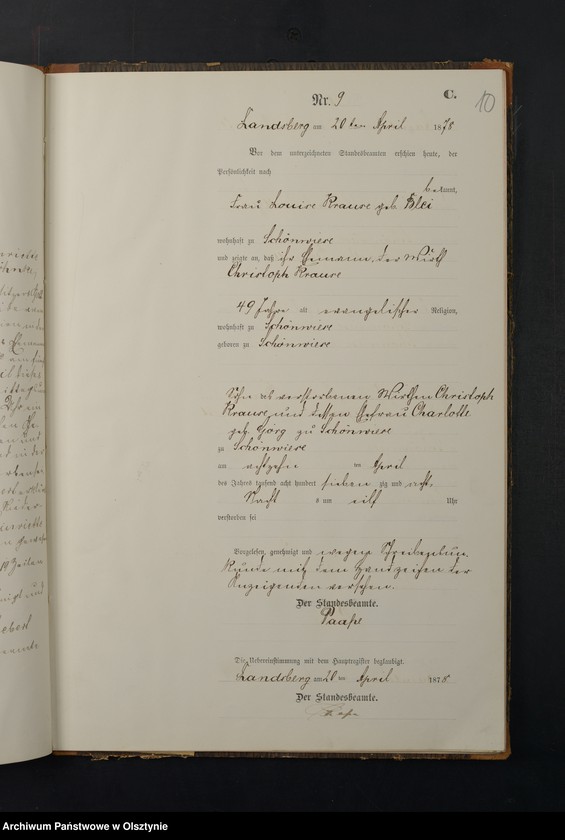 C.
10
Nr. 9
Landsberg am 20ten April 1878
Vor dem unterzeichneten Standesbeamten erschien heute, der
Persönlichkeit nach
bekannt,
Frau Louise Krause geb. Blei
wohnhaft zu Schönwiese
und zeigte an, daß ihr Ehemann, der Wirth
Christoph Krause
49 Jahre alt evangelischer Religion,
wohnhaft zu Schönwiese
geboren zu Schönwiese
Sohn des verstorbenen Wirthen Christoph
Krause und dessen Ehefrau Charlotte
geb. Görg zu Schönwiese
zu Schönwiese
am achtzehn ten April
des Jahres tausend acht hundert sieben zig und acht,
Nachts um eilf Uhr
verstorben sei
Vorgelesen, genehmigt und wegen Schreibenun-
kunde mit dem Handzeichen der
Anzeigenden versehen.
Der Standesbeamte.
Paape
Die Uebereinstimmung mit dem Hauptregister beglaubigt.
Landsberg am 20 ten April 1878
Der Standesbeamte.
Paape
Archiwum Państwowe w Olsztynie